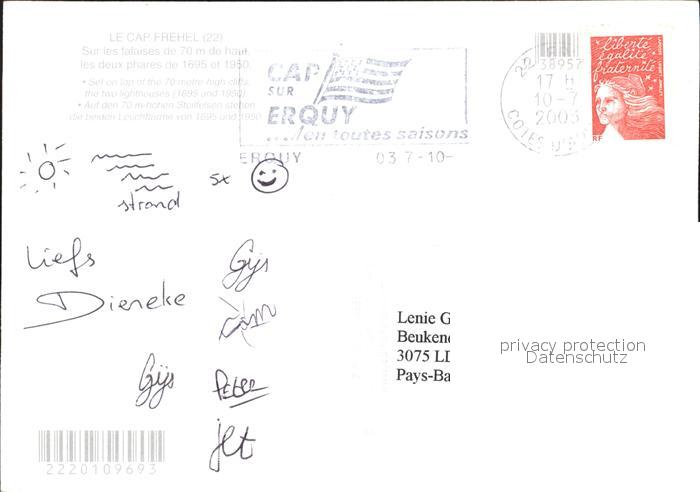 LE CAP FREHEL (22)
Sur les falaises de 70 m de haut,
les deux phares de 1695 et 1950.
• Set on top of the 70 metre-high cliffs,
the two lighthouses (1695 and 1950).
• Auf den 70 m hohen Steilfelsen stehen
die beiden Leuchttürme von 1695 und 1950
CAP
SUR
ERQUY
..../en toutes saisons
ERQUY 03 7-10-
22 38957
17 H
10-7
2003
COTES D'
liberté
égalité
fraternité
RF
5x
strand
liefs
Dieneke
Gijs
Gijs
Peter
Lenie G
Beuken
3075 LL
Pays-Ba
privacy protection
Datenschutz
2220109693